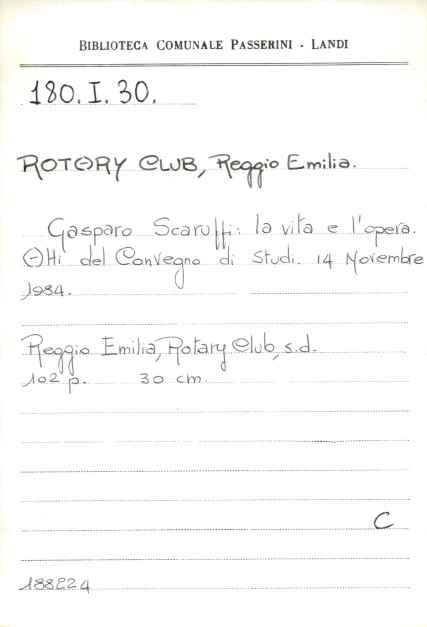 BIBLIOTECA COMUNALE PASSERINI - LANDI
180. I. 30.
ROTARY CLUB, Reggio Emilia.
Gasparo Scaruffi: la vita e l'opera.
Atti del Convegno di Studi. 14 Novembre
1984.
Reggio Emilia, Rotary Club, s.d.
102 p. 30 cm.
C
188224